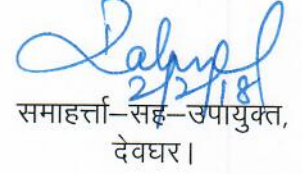 2/2/18
समाहर्त्ता–सह–उपायुक्त,
देवघर।